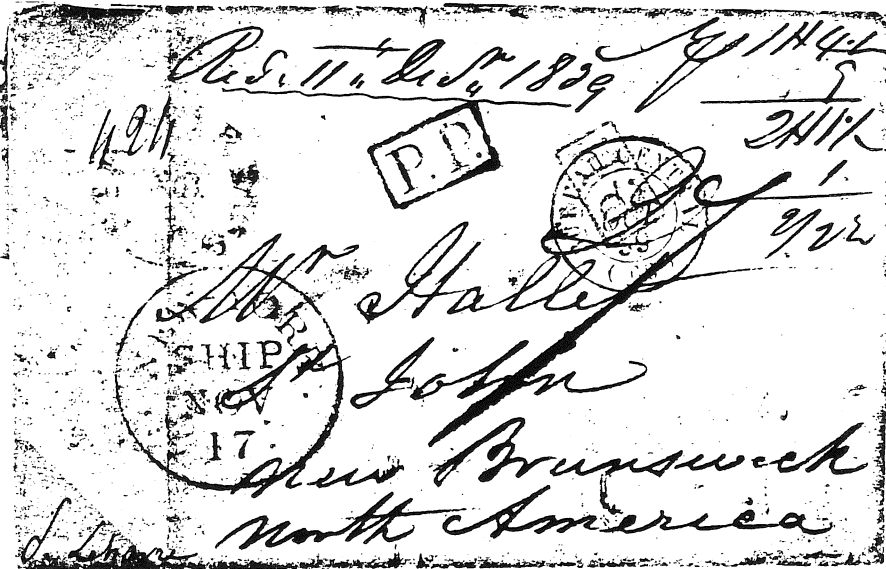 Recd. 11th Decr. 1839
1H4½
9
2H1½
1
2/2½
P.P.
NEW YORK
SHIP
NOV
17
Mr Halle
St John
New Brunswick
North America